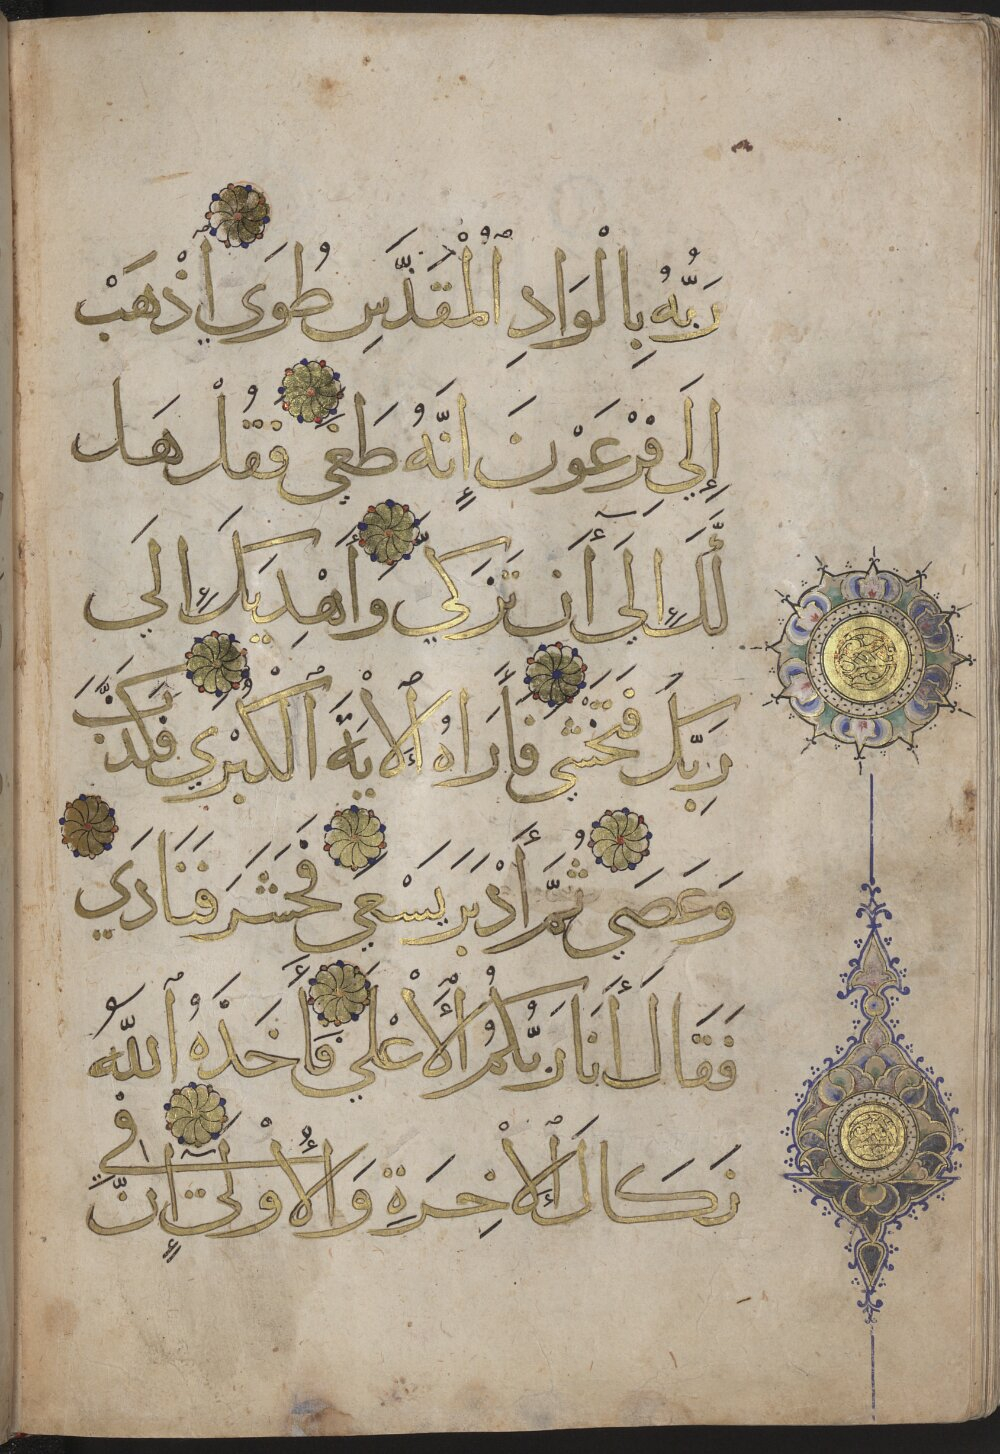 رَبُّهُ بِالْوَادِ الْمُقَدَّسِ طُوًى اِذْهَبْ
إِلَى فِرْعَوْنَ إِنَّهُ طَغَى فَقُلْ هَل
لَّكَ إِلَى أَن تَزَكَّى وَأَهْدِيَكَ إِلَى
رَبِّكَ فَتَخْشَى فَأَرَاهُ الْآيَةَ الْكُبْرَى فَكَذَّبَ
وَعَصَى ثُمَّ أَدْبَرَ يَسْعَى فَحَشَرَ فَنَادَى
فَقَالَ أَنَا رَبُّكُمُ الْأَعْلَى فَأَخَذَهُ اللَّهُ
نَكَالَ الْآخِرَةِ وَالْأُولَى إِنَّ فِي